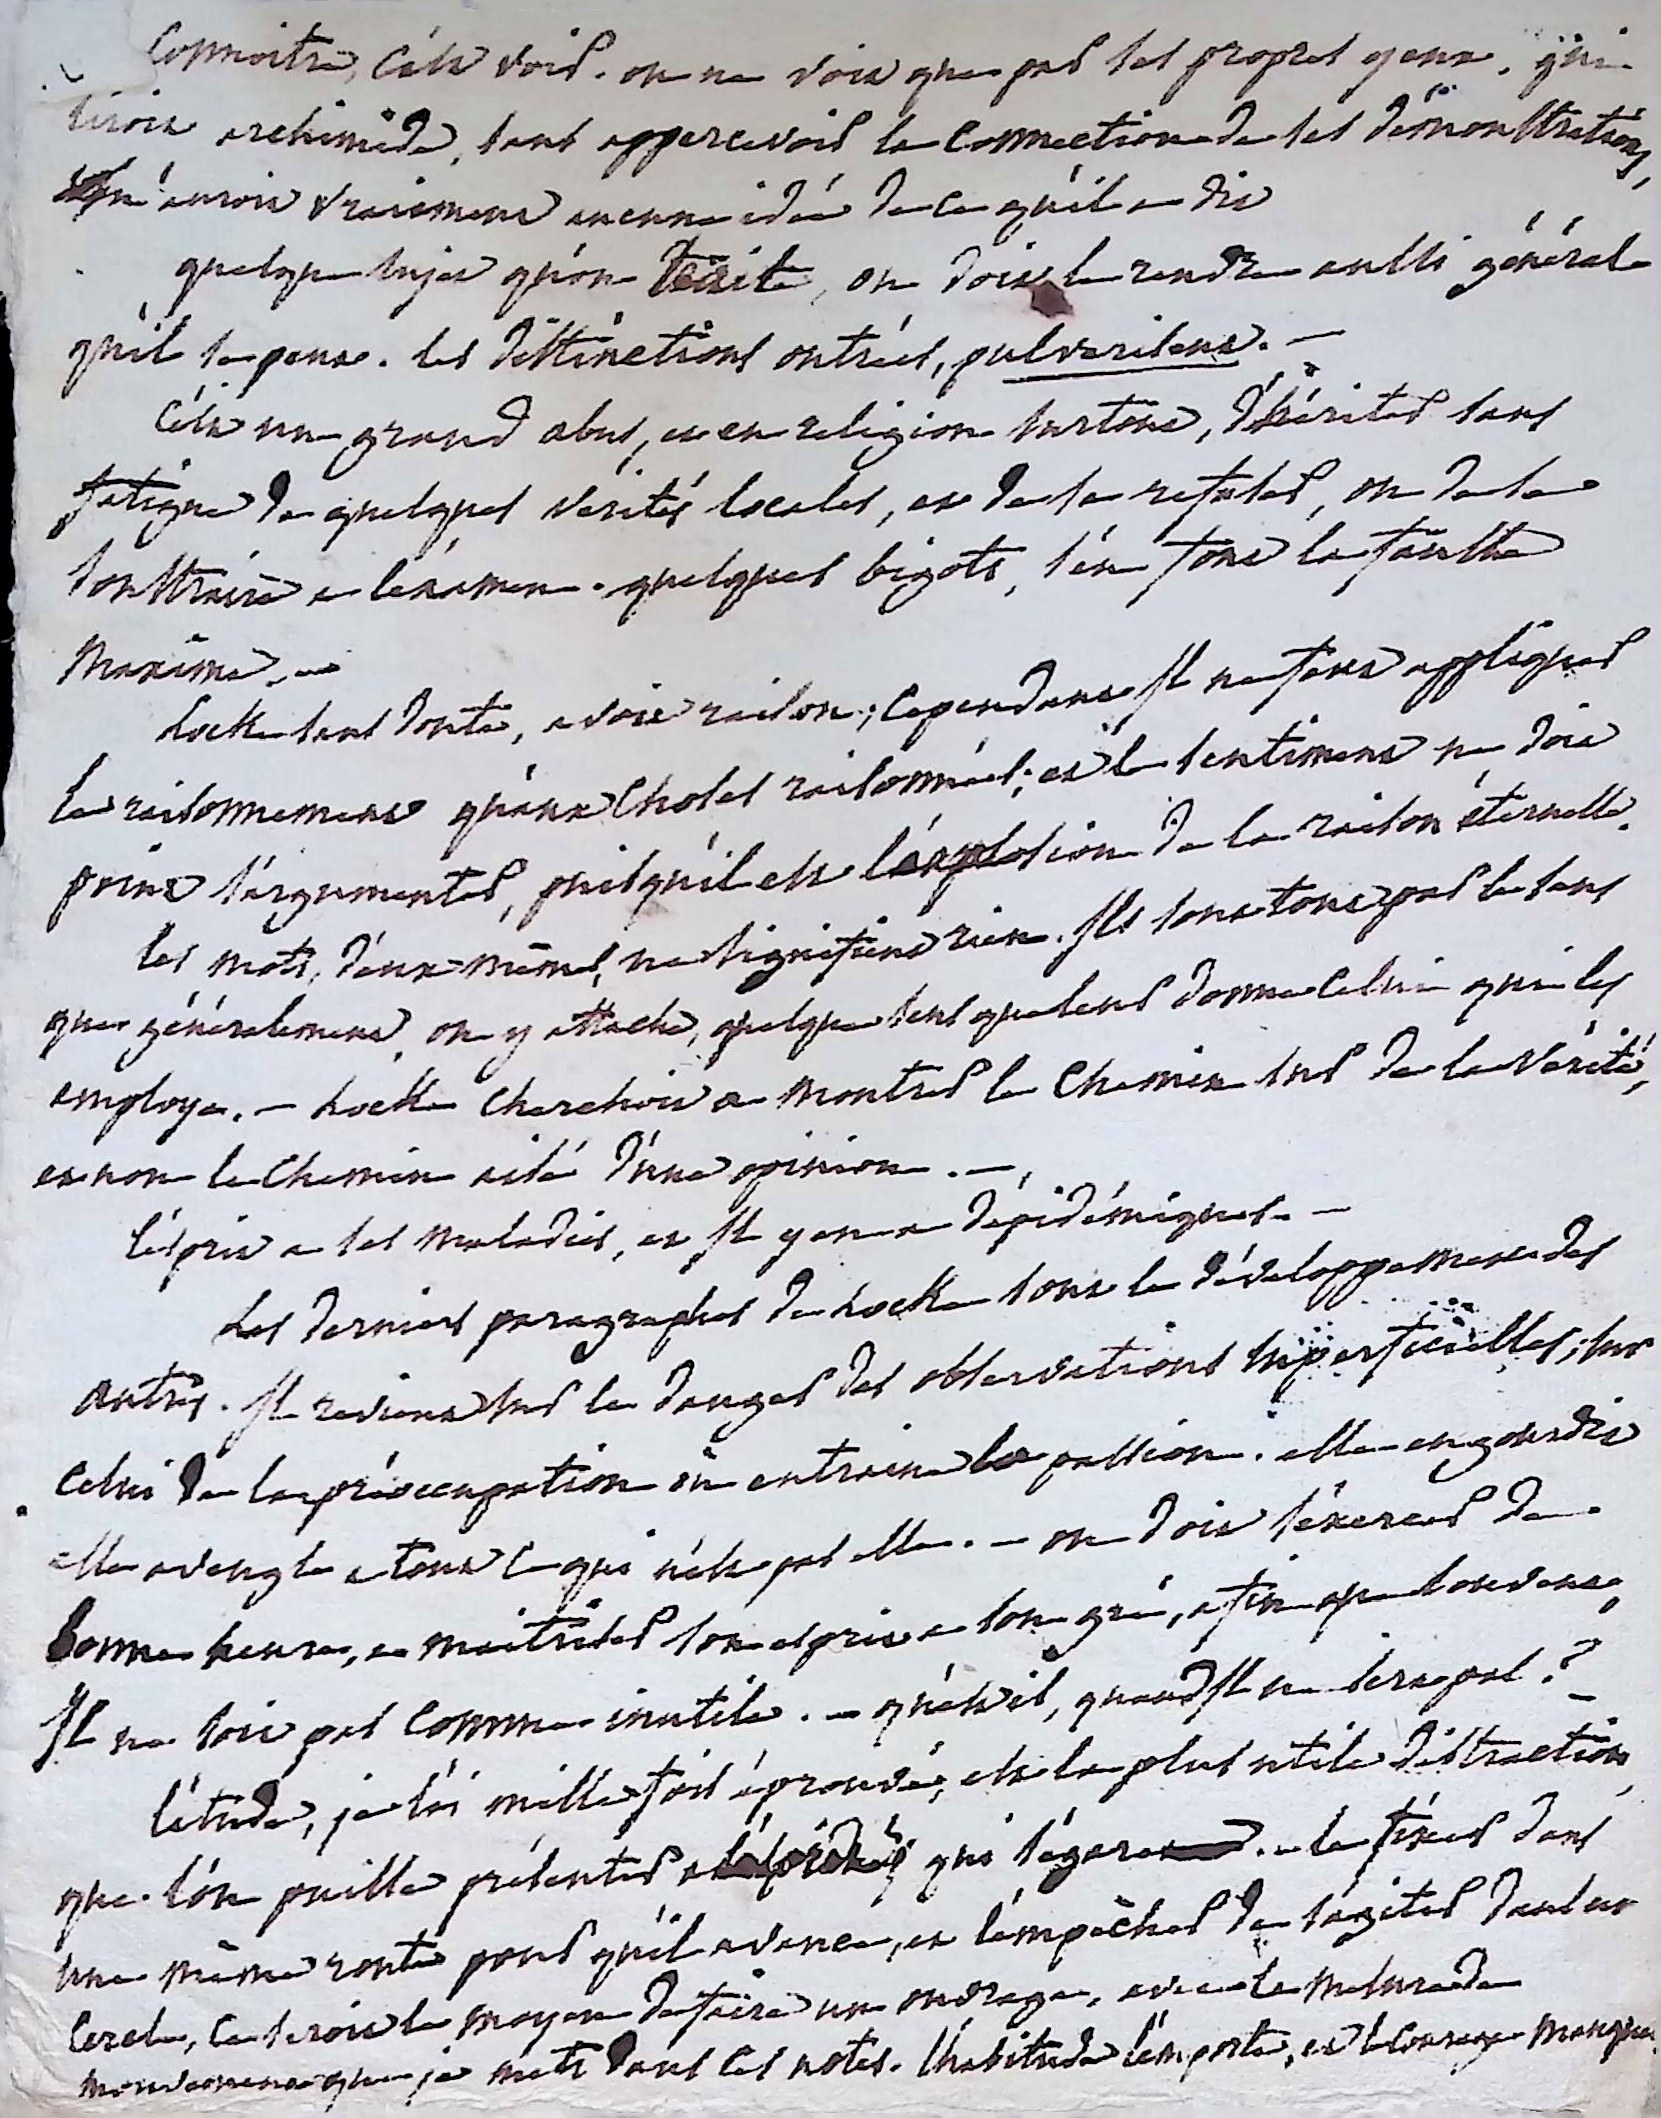 Connoitre, c'est voir. on ne voit que par ses propres yeux. qui
liroit archimede, sans appercevoir la connection de ses démonstrations,
n'auroit vraiement aucune idée de ce qu'il a dit
quelque sujet qu'on traite, on doit le rendre aussi général
qu'il se peut. les distinctions outrées, pulverisent. —
C'est un grand abus, et en religion surtout, d'hériter sans
fatigue de quelques vérités locales, et de se refuser, ou de se
soustraire a l'éxamen. quelques bigots, s'en font la fausse
maxime. —
Locke sans doute, avoit raison; cependant Il ne faut appliquer
le raisonnement qu'aux choses raisonnées; et le sentiment ne doit
point s'argumenter, puisqu'il est l'explosion de la raison éternelle.
les mots, d'eux-mêmes, ne signifient rien. Ils sont tout par le sens
que généralement on y attache, quelque sens que leur donne celui qui les
employe. — Locke cherchoit a montrer le chemin sur de la vérité,
et non le chemin aisé d'une opinion. —
l'ésprit a ses maladies, et Il y en a d'épidémiques. —
Les derniers paragraphes de Locke sont le développement des
autres. Il revient sur le danger des observations superficielles; sur
celui de la préoccupation ou entraine la passion. elle engourdit
elle aveugle a tout ce qui n'est pas elle. — on doit s'éxercer de
bonne heure, a maitriser son esprit a son gré, afin que souvent,
Il ne soit pas comme inutile. — qu'est-il, quand Il ne sera pas? —
l'étude, je l'ai mille fois éprouvé, est la plus utile distraction
que l'on puisse présenter qui s'égare. — le fixer dans
une même route pour qu'il avance, et l'empêcher de s'agiter dans un
cercle, ce seroit le moyen de faire un ouvrage, avec la mesure de
mouvement que je mets dans ces notes. l'habitude l'emporte, et le courage manque.